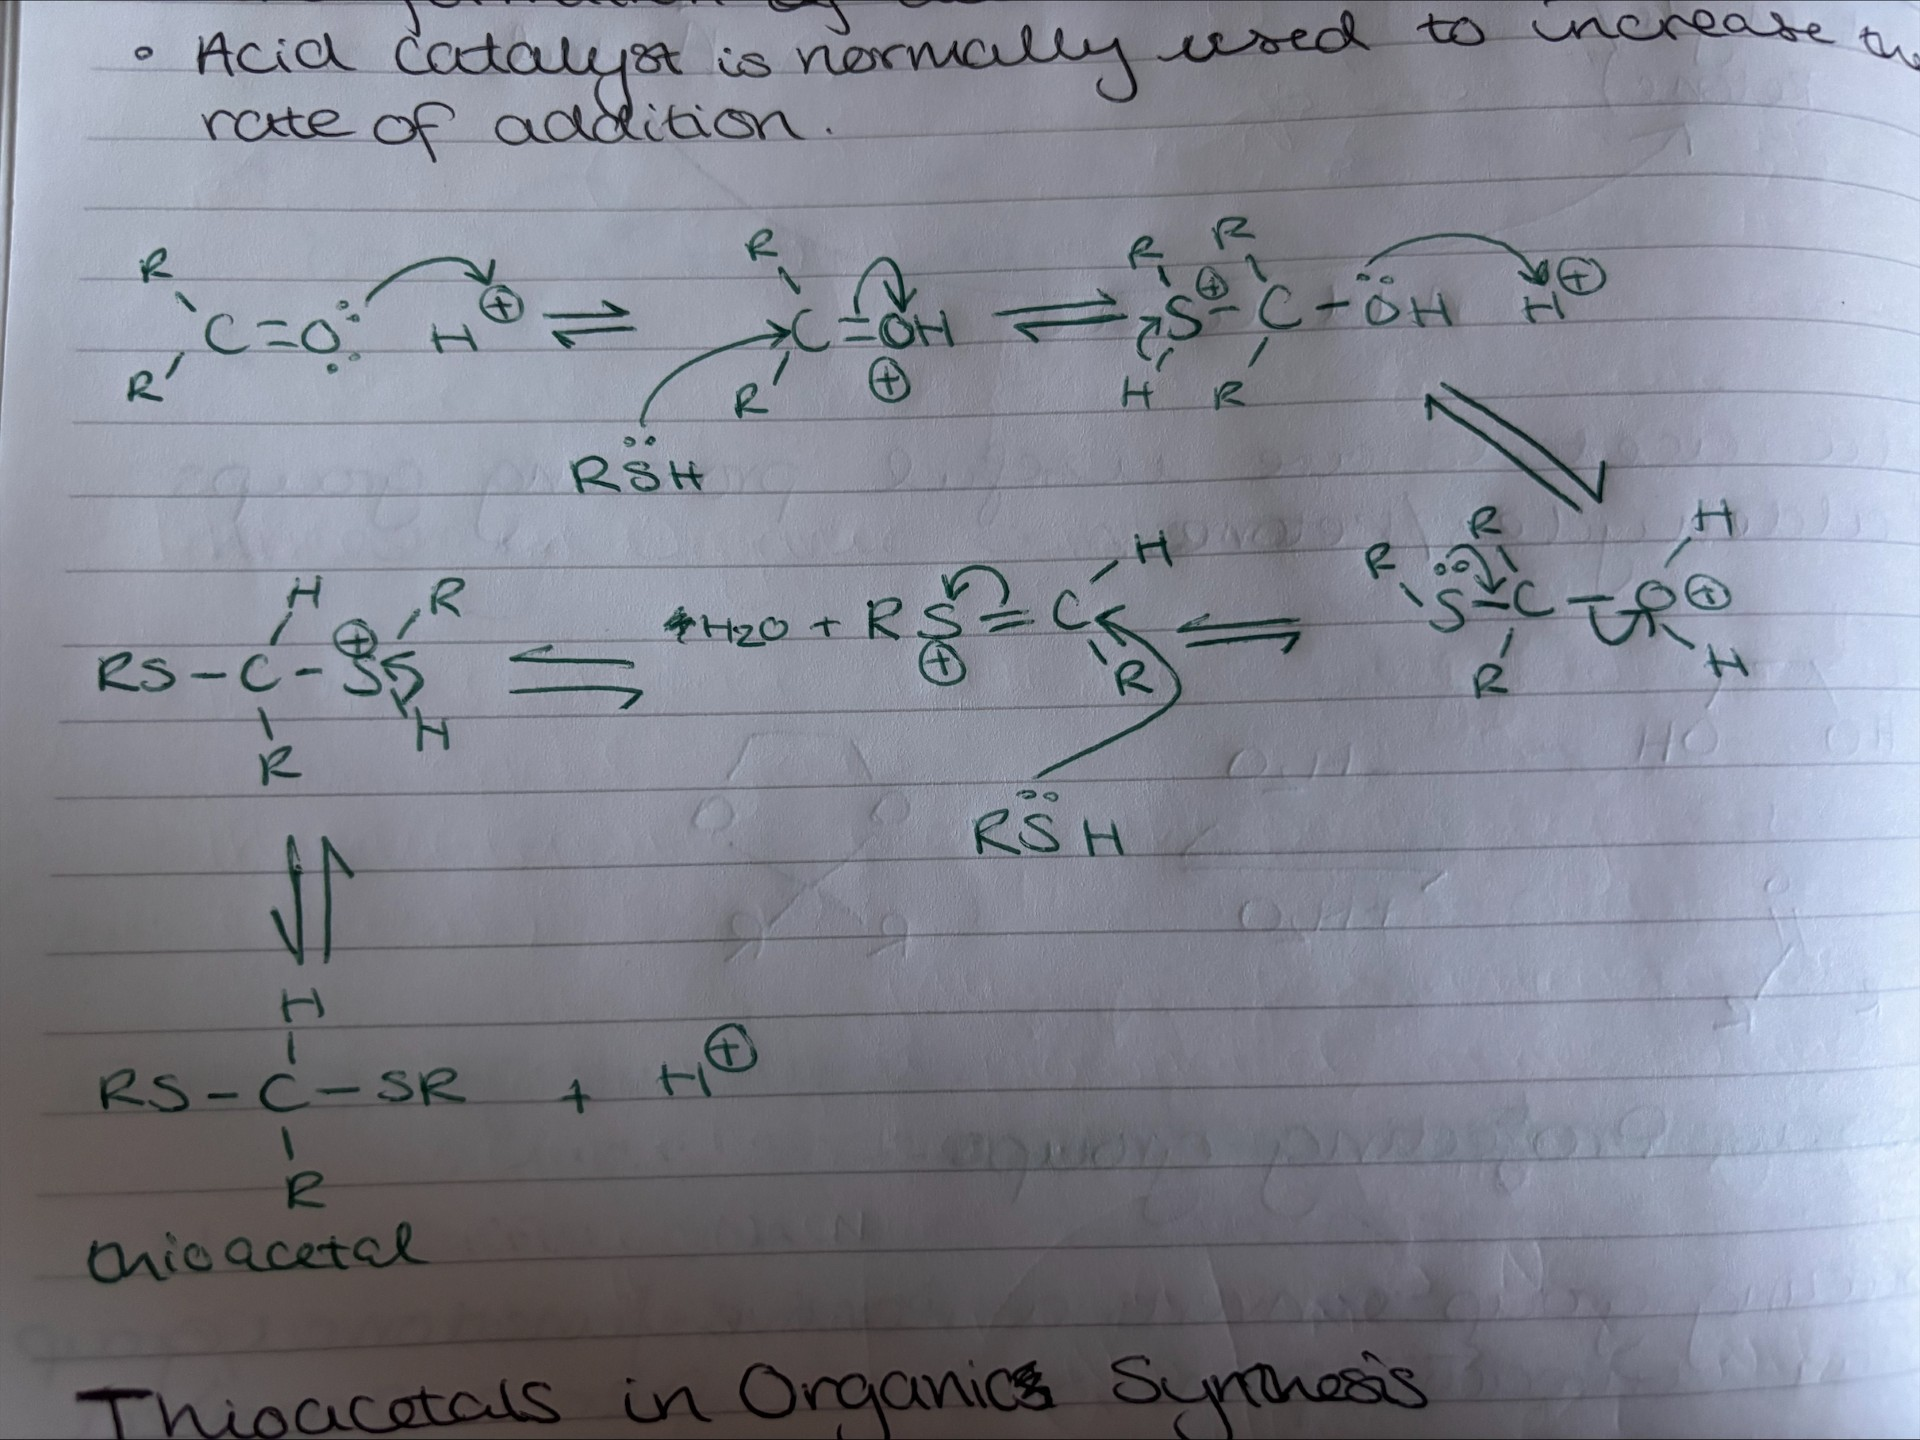 • Acid catalyst is normally used to increase the
rate of addition.
R R R R
C=O: H⊕ ⇌ C=OH ⇌ S⊕-C-ÖH H⊕
R R ⊕ H R
RS̈H
H
R R H
H R *H2O + RS=C ⇌ S-C-O⊕
RS-C-S⊕ ⇌ ⊕ R R H
R H
RS̈H
H
RS-C-SR + H⊕
R
thioacetal
Thioacetals in Organic Synthesis